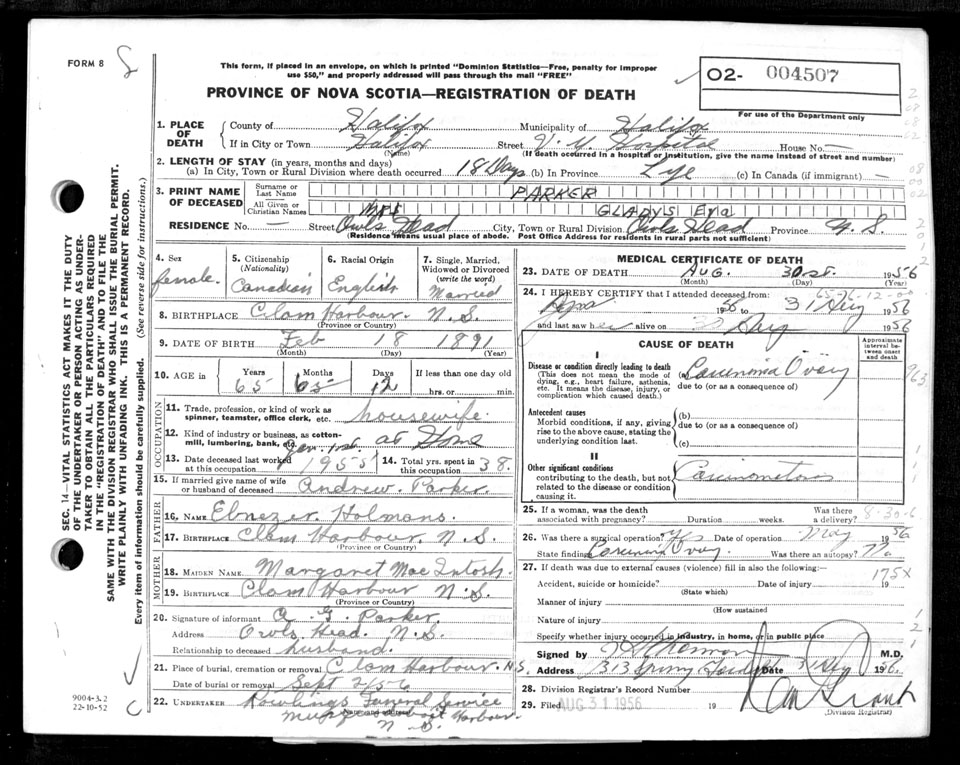 FORM 8
This form, if placed in an envelope, on which is printed "Dominion Statistics—Free, penalty for improper
use $50," and properly addressed will pass through the mail "FREE"
PROVINCE OF NOVA SCOTIA—REGISTRATION OF DEATH
02- 004507
For use of the Department only
SEC. 14—VITAL STATISTICS ACT MAKES IT THE DUTY
OF THE UNDERTAKER OR PERSON ACTING AS UNDER-
TAKER TO OBTAIN ALL THE PARTICULARS REQUIRED
IN THE "REGISTRATION OF DEATH" AND TO FILE THE
SAME WITH THE DIVISION REGISTRAR WHO SHALL ISSUE THE BURIAL PERMIT.
WRITE PLAINLY WITH UNFADING INK. THIS IS A PERMANENT RECORD.
Every item of information should be carefully supplied. (See reverse side for instructions.)
9004-3.2
22-10-52
1. PLACE OF DEATH
County of Halifax Municipality of Halifax
If in City or Town Halifax Street V. G. Hospital House No. —
(Name) (If death occurred in a hospital or institution, give the name instead of street and number)
2. LENGTH OF STAY (in years, months and days)
(a) In City, Town or Rural Division where death occurred 18 Days (b) In Province Life (c) In Canada (if immigrant) —
3. PRINT NAME OF DECEASED
Surname or Last Name PARKER
All Given or Christian Names MRS GLADYS Ena
RESIDENCE No. — Street Owls Head City, Town or Rural Division Owls Head Province N. S.
(Residence means usual place of abode. Post Office Address for residents in rural parts not sufficient)
4. Sex female
5. Citizenship (Nationality) Canadian
6. Racial Origin English
7. Single, Married, Widowed or Divorced (write the word) Married
8. BIRTHPLACE Clam Harbour N. S.
(Province or Country)
9. DATE OF BIRTH Feb 18 1891
(Month) (Day) (Year)
10. AGE IN Years 65 Months Days 12 If less than one day old
hrs. or min.
OCCUPATION
11. Trade, profession, or kind of work as
spinner, teamster, office clerk, etc. housewife
12. Kind of industry or business, as cotton-
mill, lumbering, bank, etc. at Home
13. Date deceased last worked
at this occupation Jan. 1st 1955 14. Total yrs. spent in 38.
15. If married give name of wife
or husband of deceased Andrew Parker.
FATHER
16. NAME Ebnezer Holmans.
17. BIRTHPLACE Clam Harbour, N. S.
(Province or Country)
MOTHER
18. MAIDEN NAME Margaret Mac Intosh.
19. BIRTHPLACE Clam Harbour N. S.
(Province or Country)
20. Signature of informant Parker.
Address Owls Head. N. S.
Relationship to deceased husband.
21. Place of burial, cremation or removal Clam Harbour. N.S.
Date of burial or removal Sept 2/56
22. UNDERTAKER Rowlings Funeral Service
Harbour.
N. S.
MEDICAL CERTIFICATE OF DEATH
23. DATE OF DEATH Aug. 30st. 1956
(Month) (Day) (Year)
24. I HEREBY CERTIFY that I attended deceased from:
56 to 31 Aug 1956
and last saw her alive on Aug 1956
65-6-12-00
CAUSE OF DEATH
Approximate interval between onset and death
I
Disease or condition directly leading to death
(This does not mean the mode of
dying, e.g., heart failure, asthenia,
etc. It means the disease, injury, or
complication which caused death.)
(a) Carcinoma Ovary
due to (or as a consequence of)
Antecedent causes
Morbid conditions, if any, giving
rise to the above cause, stating the
underlying condition last.
(b)
due to (or as a consequence of)
(c)
II
Other significant conditions
contributing to the death, but not
related to the disease or condition
causing it.
25. If a woman, was the death
associated with pregnancy? Duration weeks. Was there a delivery? 8-30-6
26. Was there a surgical operation? Yes Date of operation May 1956
State findings Carcinoma Ovary Was there an autopsy? No
27. If death was due to external causes (violence) fill in also the following:—
175X
Accident, suicide or homicide? Date of injury 19
(State which)
Manner of injury
(How sustained
Nature of injury
Specify whether injury occurred in industry, in home, or in public place
Signed by M.D.
Address 313 Date 31 Aug 1956
28. Division Registrar's Record Number
29. Filed AUG 31 1956 19
(Division Registrar)